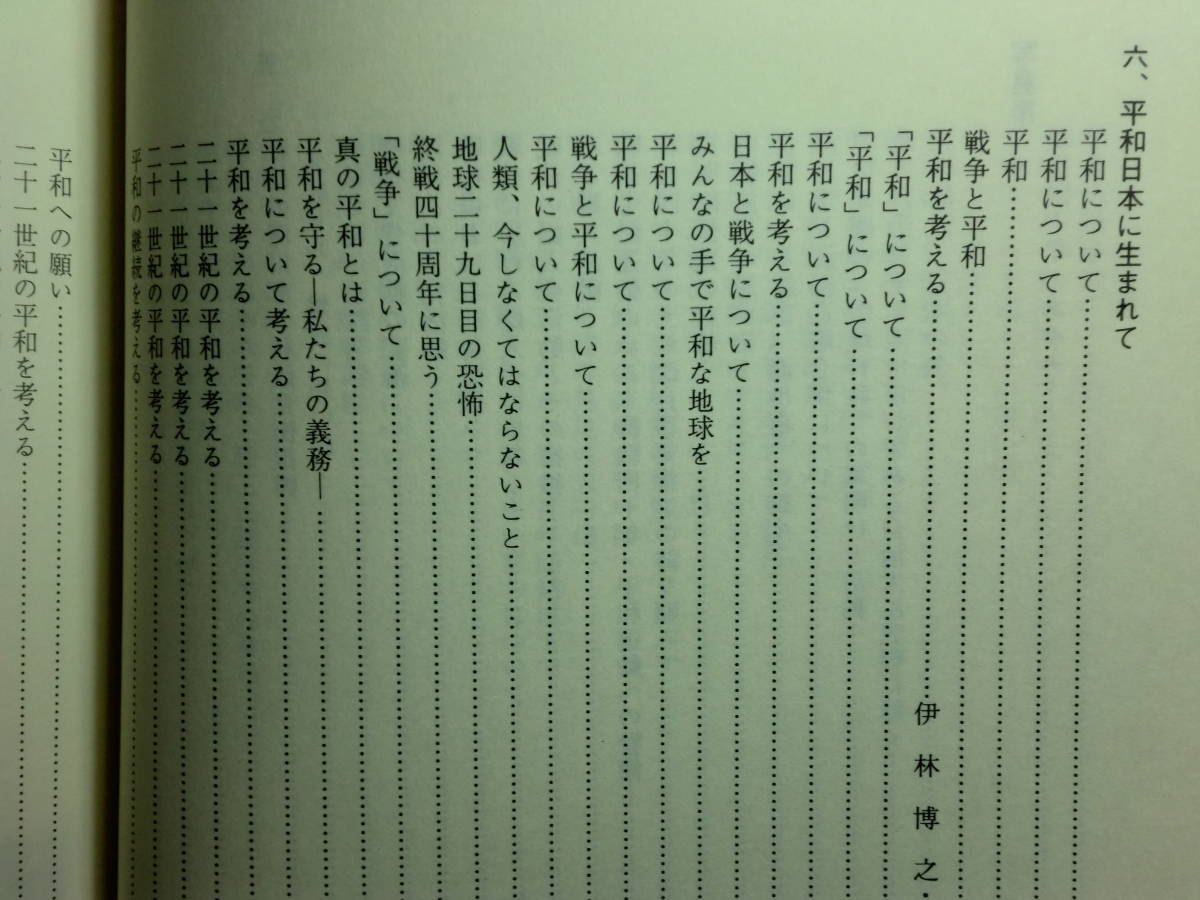 六、平和日本に生まれて
平和について…………
平和について…………
平和…………
戦争と平和…………
平和を考える…………伊林博之…
「平和」について…………
「平和」について…………
平和について…………
平和を考える…………
日本と戦争について…………
みんなの手で平和な地球を…………
平和について…………
平和について…………
戦争と平和について…………
平和について…………
人類、今しなくてはならないこと…………
地球二十九日目の恐怖…………
終戦四十周年に思う…………
「戦争」について…………
真の平和とは…………
平和を守る―私たちの義務―…………
平和について考える…………
平和を考える…………
二十一世紀の平和を考える…………
二十一世紀の平和を考える…………
二十一世紀の平和を考える…………
平和の継続を考える…………
平和への願い…………
二十一世紀の平和を考える…………